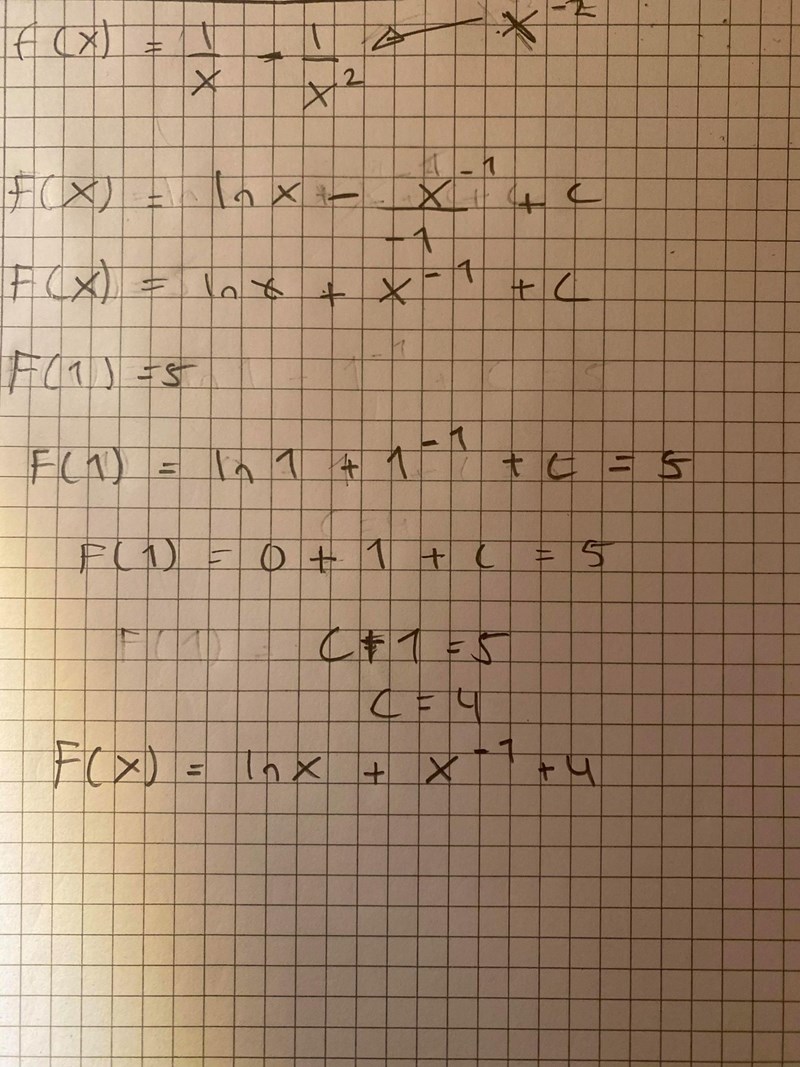 f(x) = 1/x - 1/x² ← x⁻²
F(x) = ln x - x⁻¹/-1 + C
F(x) = ln x + x⁻¹ + C
F(1) = 5
F(1) = ln 1 + 1⁻¹ + C = 5
F(1) = 0 + 1 + C = 5
C + 1 = 5
C = 4
F(x) = ln x + x⁻¹ + 4